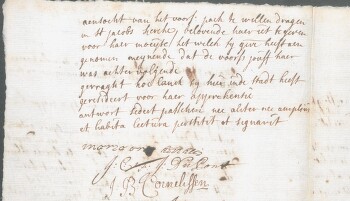 aensocht van het voors. pack te willen dragen
in St Jacobs kercke, belovende haer iet te geven
voor haer moeijte, het welck hij give heeft aen
genomen meijnende dat de voors. jouff haer
was achter volgende
gevraght hoe lanck hij hier inde stadt heeft
geresideert voor haer apprehentie
antwort sedert paesschen nec aliter nec
et habita lectura perstitit et signavit
J. B. Cornelissen